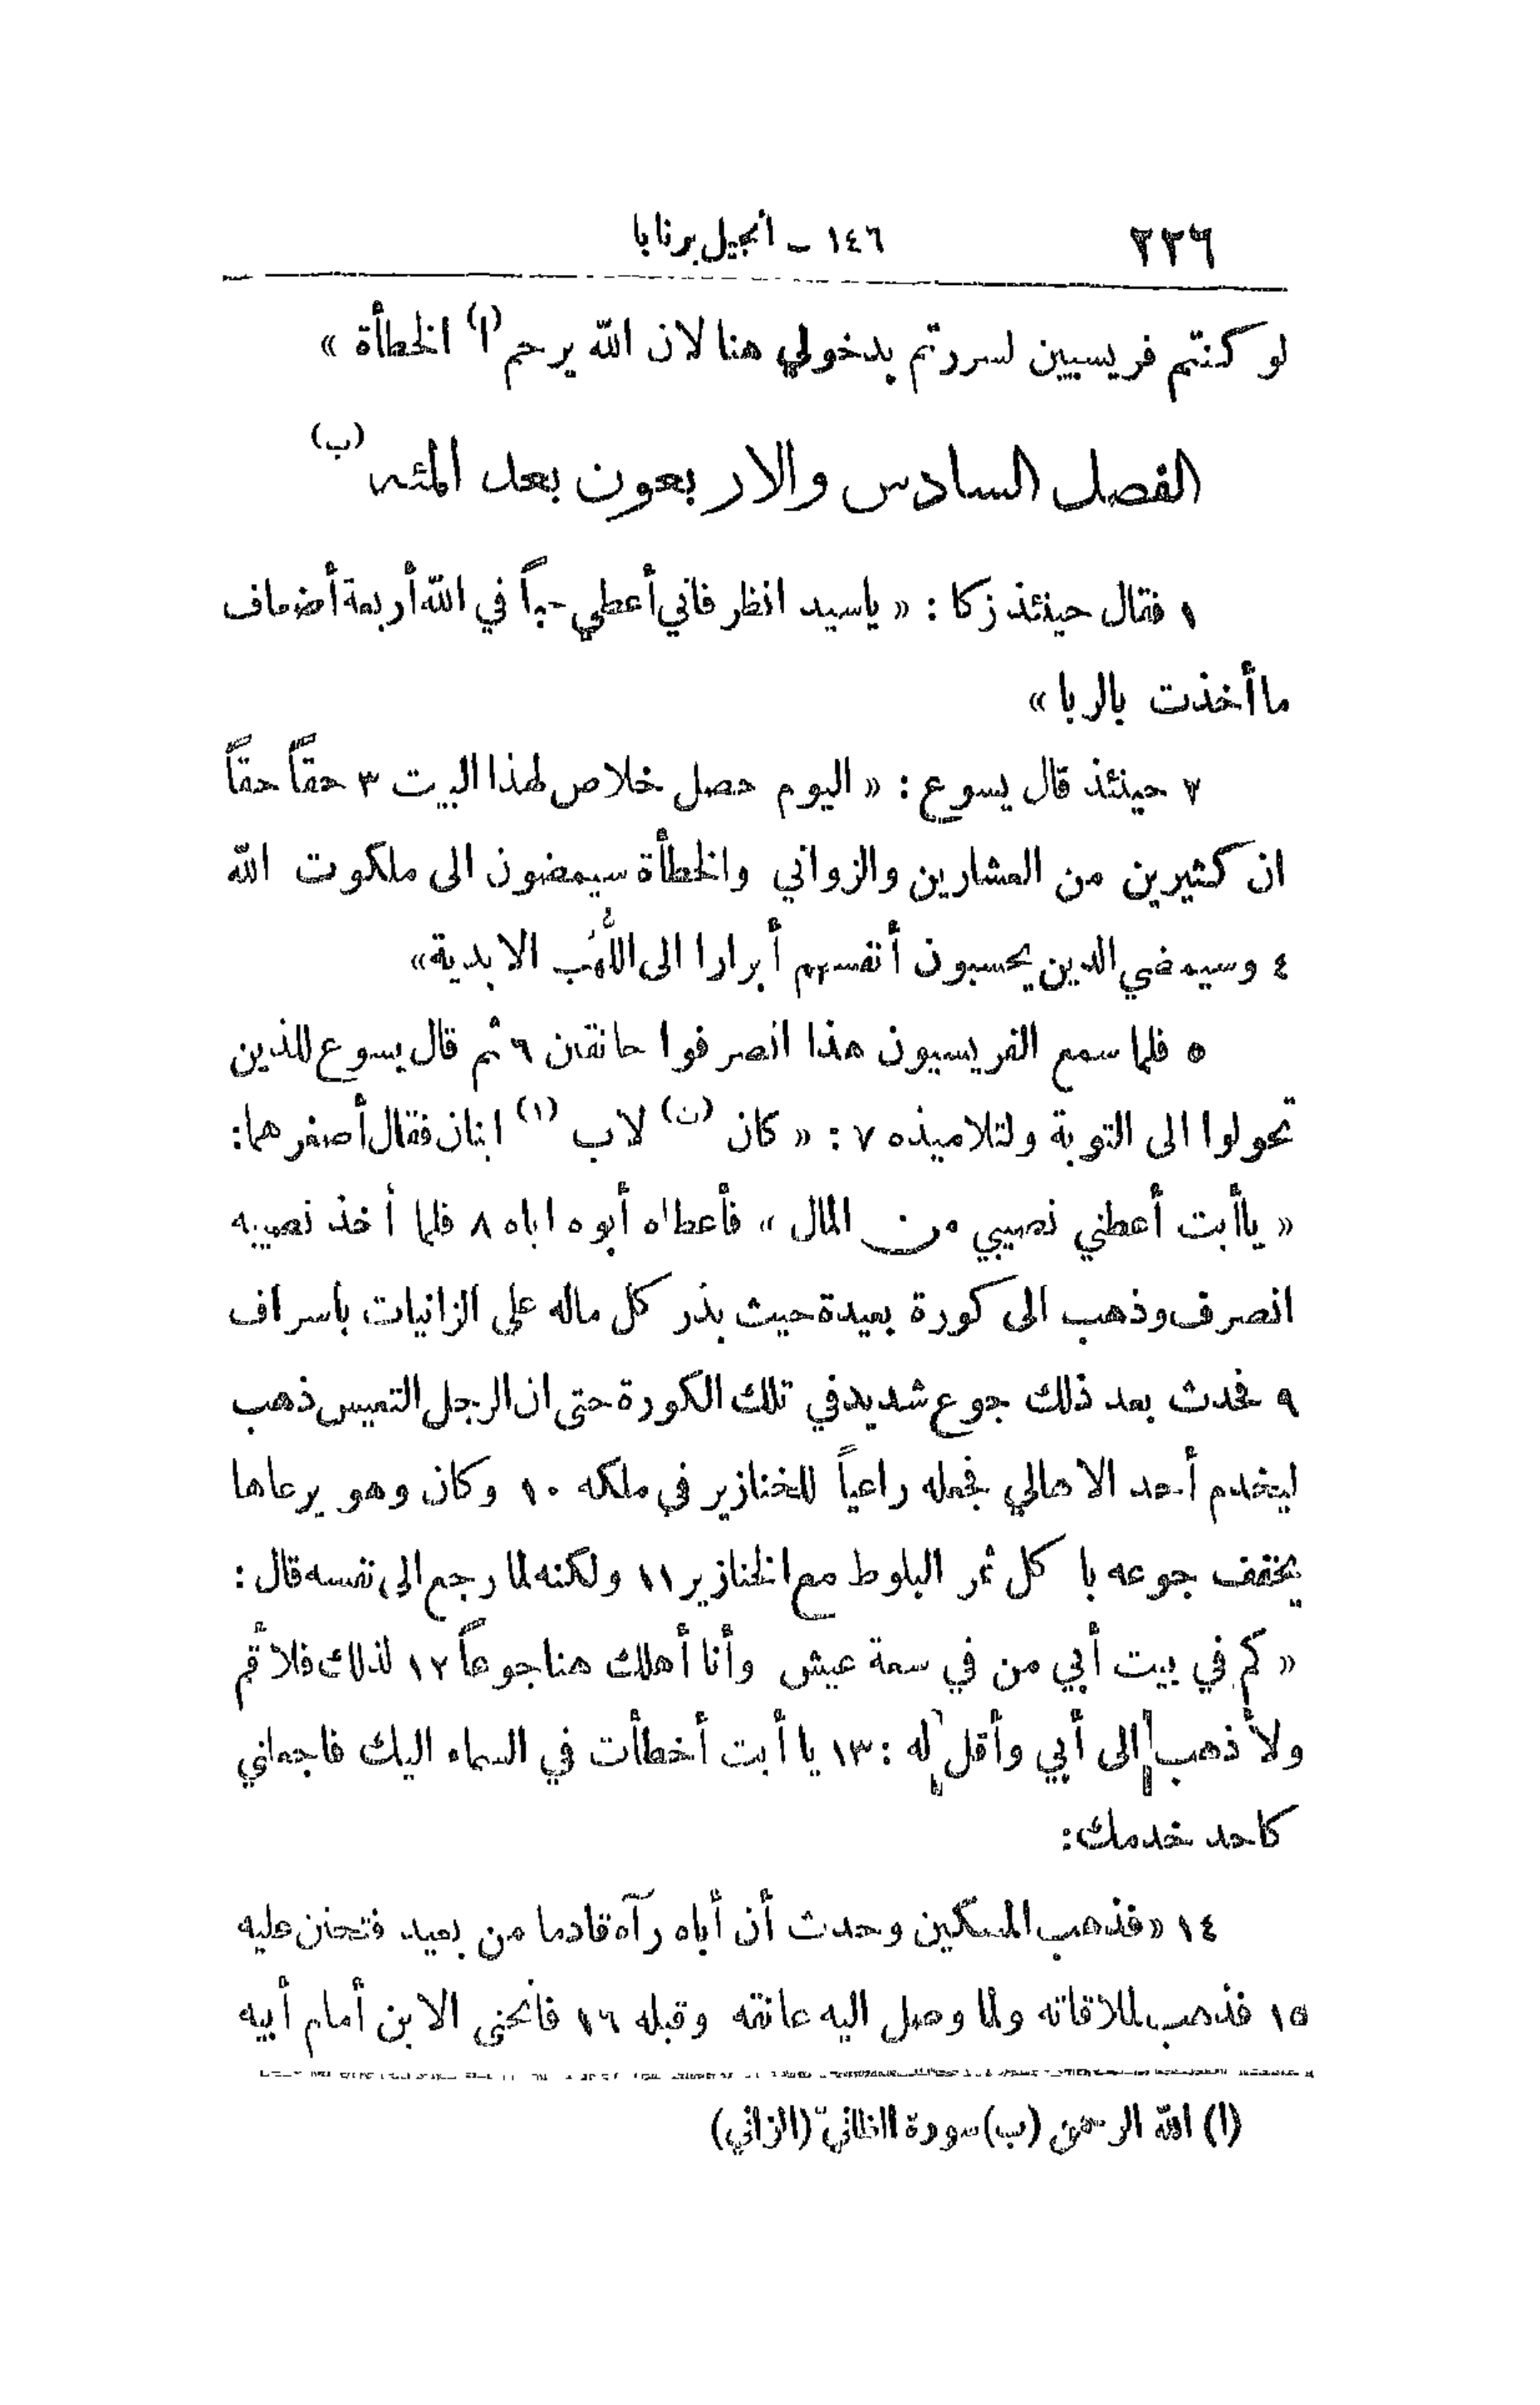 ٢٢٦ ١٤٦ - انجيل برنابا
لو كنتم فريسيين لسررتم بدخولي هنا لان الله يرحم (ا) الخطأة »
الفصل السادس والاربعون بعد المئه (ب)
١ فقال حينئذ زكا : « ياسيد انظر فاني أعطي حباً في الله أربعة أضعاف
ما أخذت بالربا »
٢ حينئذ قال يسوع : « اليوم حصل خلاص لهذا البيت ٣ حقاً حقاً
ان كثيرين من العشارين والزواني والخطأة سيمضون الى ملكوت الله
٤ وسيمضي الذين يحسبون أنفسهم أبرارا الى اللهب الابدية»
٥ فلما سمع الفريسيون هذا انصرفوا حانقين ٦ ثم قال يسوع للذين
تحولوا الى التوبة ولتلاميذه ٧ : « كان (ت) لاب (١) ابنان فقال أصغرهما:
« ياأبت أعطني نصيبي من المال » فأعطاه أبوه اياه ٨ فلما أخذ نصيبه
انصرف وذهب الى كورة بعيدة حيث بذر كل ماله على الزانيات باسراف
٩ فحدث بعد ذلك جوع شديد في تلك الكورة حتى ان الرجل التعيس ذهب
ليخدم أحد الاهالي فجعله راعياً للخنازير في ملكه ١٠ وكان وهو يرعاها
يخفف جوعه با كل ثمر البلوط مع الخنازير ١١ ولكنه لما رجع الى نفسه قال :
« كم في بيت أبي من في سعة عيش وأنا أهلك هنا جوعاً ١٢ لذلك فلأقم
ولأذهب إلى أبي وأقل له : ١٣ يا أبت أخطأت في السماء اليك فاجعلني
كاحد خدمك:
١٤ «فذهب المسكين وحدث أن أباه رآه قادما من بعيد فتحنن عليه
١٥ فذهب لملاقاته ولما وصل اليه عانقه وقبله ١٦ فانحنى الابن أمام أبيه
(ا) الله الرحمن (ب) سورة الظاني (الزاني)